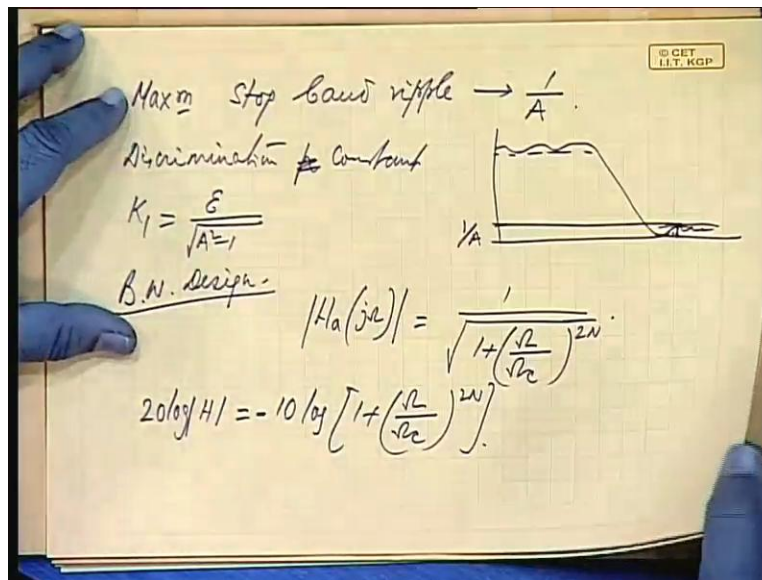 © CET
I.I.T. KGP
Maxm Stop band ripple → 1/A.
Discrimination Constant
K₁ = ε/√(A²-1)
1/A
B.W. Design.
|Ha(jΩ)| = 1/√(1+(Ω/Ωc)^2N).
20log|H| = -10 log[1+(Ω/Ωc)^2N].